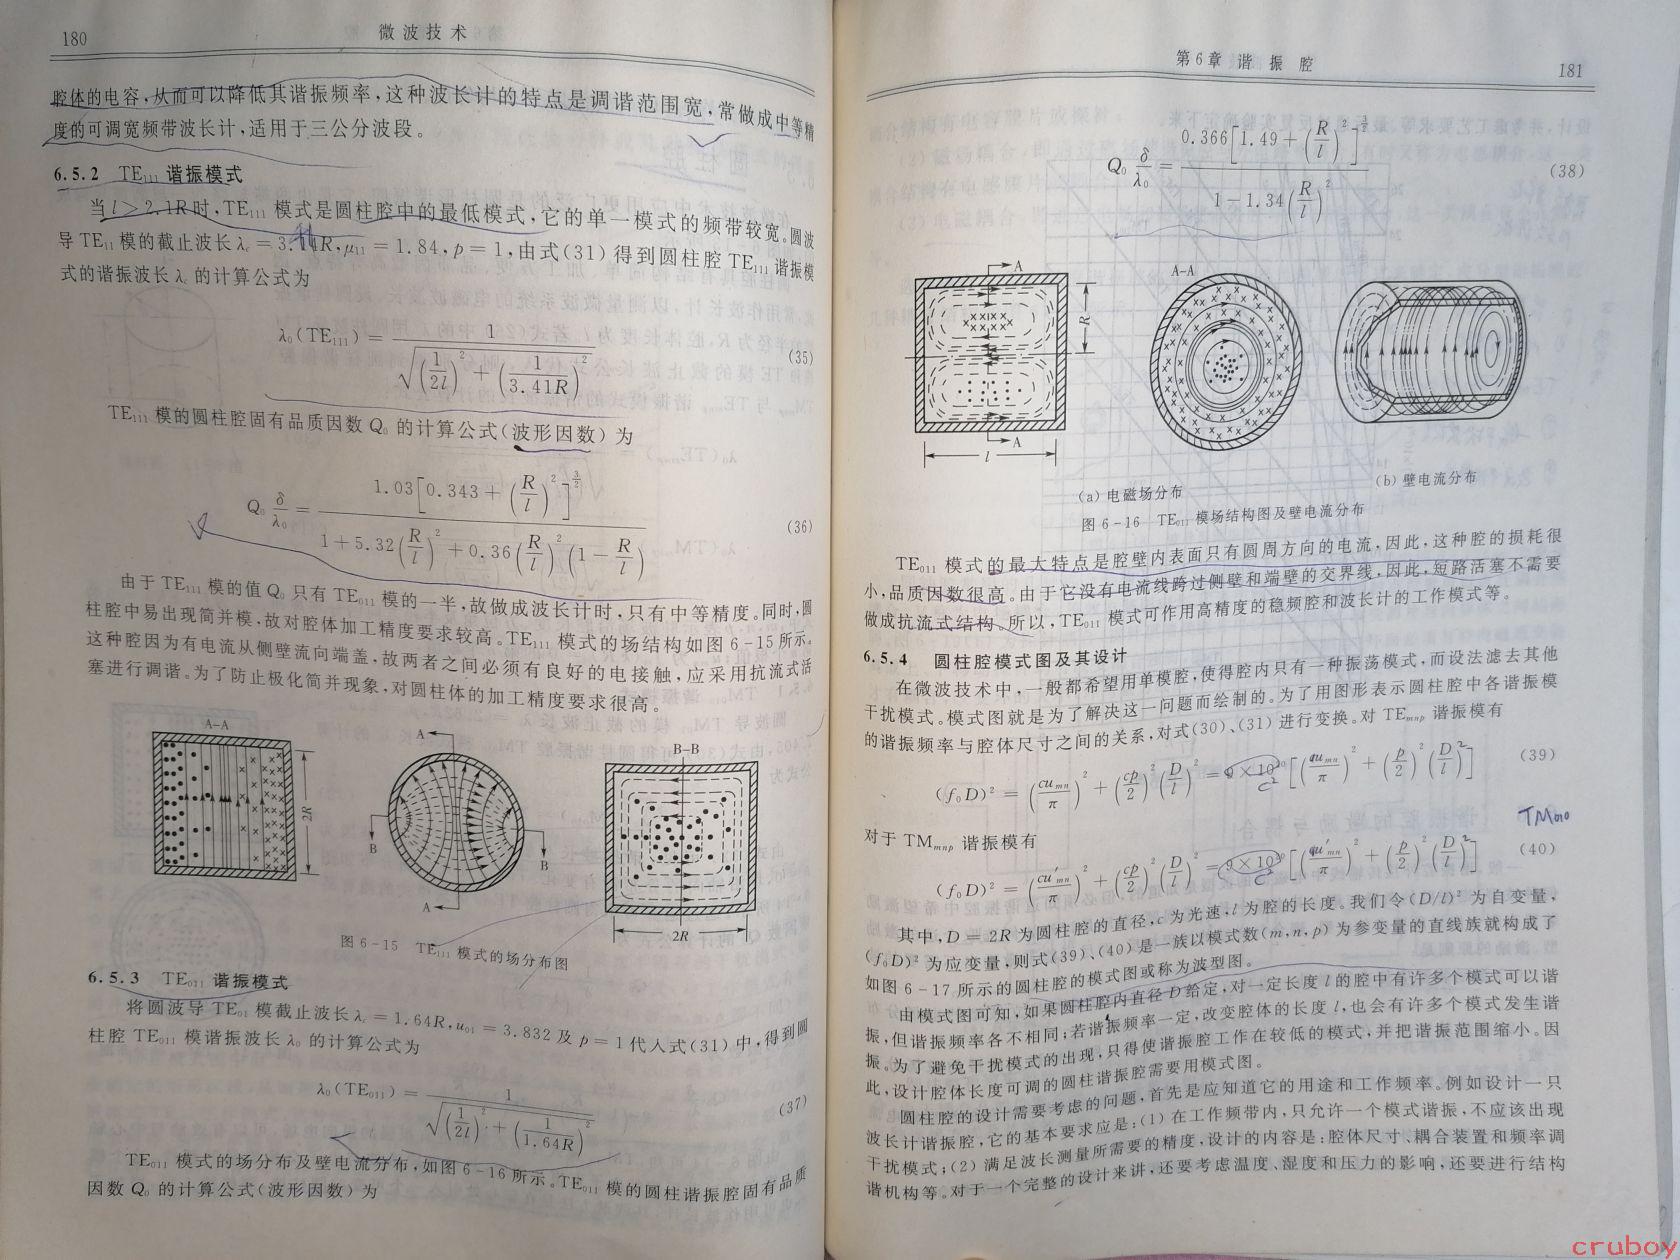 180
微波技术
腔体的电容,从而可以降低其谐振频率,这种波长计的特点是调谐范围宽,常做成中等精
度的可调宽频带波长计,适用于三公分波段。
6.5.2 TE₁₁₁ 谐振模式
当 l>2.1R 时,TE₁₁₁ 模式是圆柱腔中的最低模式,它的单一模式的频带较宽。圆波
导 TE₁₁ 模的截止波长 λc = 3.41R,μ₁₁ = 1.84,p = 1,由式(31)得到圆柱腔 TE₁₁₁ 谐振模
式的谐振波长 λc 的计算公式为
λ₀(TE₁₁₁) = 1 / √((1/2l)² + (1/3.41R)²) (35)
TE₁₁₁ 模的圆柱腔固有品质因数 Q₀ 的计算公式(波形因数)为
Q₀ δ/λ₀ = 1.03[0.343 + (R/l)²]^(3/2) / (1 + 5.32(R/l)² + 0.36(R/l)²(1 − R/l)) (36)
由于 TE₁₁₁ 模的值 Q₀ 只有 TE₀₁₁ 模的一半,故做成波长计时,只有中等精度。同时,圆
柱腔中易出现简并模,故对腔体加工精度要求较高。TE₁₁₁ 模式的场结构如图 6-15 所示。
这种腔因为有电流从侧壁流向端盖,故两者之间必须有良好的电接触,应采用抗流式活
塞进行调谐。为了防止极化简并现象,对圆柱体的加工精度要求很高。
A-A
2R
A
B
B
A
B-B
2R
图 6-15 TE₁₁₁ 模式的场分布图
6.5.3 TE₀₁₁ 谐振模式
将圆波导 TE₀₁ 模截止波长 λc = 1.64R,u₀₁ = 3.832 及 p = 1 代入式(31)中,得到圆
柱腔 TE₀₁₁ 模谐振波长 λ₀ 的计算公式为
λ₀(TE₀₁₁) = 1 / √((1/2l)² + (1/1.64R)²) (37)
TE₀₁₁ 模式的场分布及壁电流分布,如图 6-16 所示。TE₀₁₁ 模的圆柱谐振腔固有品质
因数 Q₀ 的计算公式(波形因数)为
第6章 谐振腔
181
Q₀ δ/λ₀ = 0.366[1.49 + (R/l)²]^(3/2) / (1 − 1.34(R/l)²) (38)
A
R
A
l
A-A
(a) 电磁场分布
(b) 壁电流分布
图 6-16 TE₀₁₁ 模场结构图及壁电流分布
TE₀₁₁ 模式的最大特点是腔壁内表面只有圆周方向的电流,因此,这种腔的损耗很
小,品质因数很高。由于它没有电流线跨过侧壁和端壁的交界线,因此,短路活塞不需要
做成抗流式结构。所以,TE₀₁₁ 模式可作用高精度的稳频腔和波长计的工作模式等。
6.5.4 圆柱腔模式图及其设计
在微波技术中,一般都希望用单模腔,使得腔内只有一种振荡模式,而设法滤去其他
干扰模式。模式图就是为了解决这一问题而绘制的。为了用图形表示圆柱腔中各谐振模
的谐振频率与腔体尺寸之间的关系,对式(30)、(31)进行变换。对 TEmnp 谐振模有
(f₀D)² = (cumn/π)² + (cp/2)²(D/l)² = 9×10²⁰ c² [(umn/π)² + (p/2)²(D/l)²] (39)
TM₀₁₀
对于 TMmnp 谐振模有
(f₀D)² = (cu′mn/π)² + (cp/2)²(D/l)² = 9×10²⁰ c² [(u′mn/π)² + (p/2)²(D/l)²] (40)
其中,D = 2R 为圆柱腔的直径,c 为光速,l 为腔的长度。我们令(D/l)² 为自变量,
(f₀D)² 为应变量,则式(39)、(40)是一族以模式数(m,n,p)为参变量的直线族就构成了
如图 6-17 所示的圆柱腔的模式图或称为波型图。
由模式图可知,如果圆柱腔内直径 D 给定,对一定长度 l 的腔中有许多个模式可以谐
振,但谐振频率各不相同;若谐振频率一定,改变腔体的长度 l,也会有许多个模式发生谐
振。为了避免干扰模式的出现,只得使谐振腔工作在较低的模式,并把谐振范围缩小。因
此,设计腔体长度可调的圆柱谐振腔需要用模式图。
圆柱腔的设计需要考虑的问题,首先是应知道它的用途和工作频率。例如设计一只
波长计谐振腔,它的基本要求应是:(1)在工作频带内,只允许一个模式谐振,不应该出现
干扰模式;(2)满足波长测量所需要的精度,设计的内容是:腔体尺寸、耦合装置和频率调
谐机构等。对于一个完整的设计来讲,还要考虑温度、湿度和压力的影响,还要进行结构
cruboy